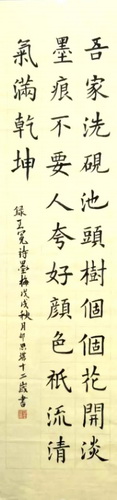 吾家洗硯池頭樹個個花開淡
墨痕不要人夸好顔色祇流清
氣滿乾坤
録王冕詩墨梅戊戌秋月
十二歲書